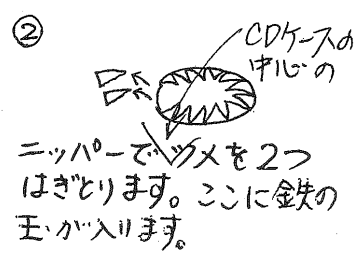 ②
CDケースの
中心の
ニッパーでツメを2つ
はぎとります。ここに鉄の
玉が入ります。